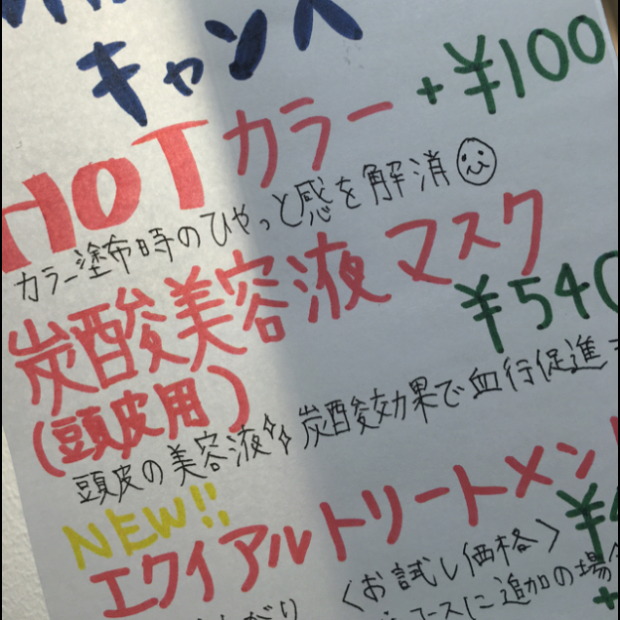 キャンペ
HOTカラー +¥100
カラー塗布時のひやっと感を解消
炭酸美容液マスク
(頭皮用) ¥540
頭皮の美容液 炭酸効果で血行促進
NEW!!
エクイアルトリートメント
〈お試し価格〉 ¥4
コースに追加の場合 +